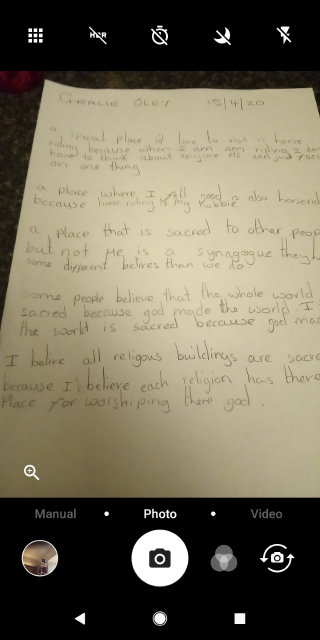 HDR
OLEY 15/4/20
a special place is like to not n horse
riding because when I am am riding I
have to think about anyone els and just
on one thing
a place where I good is also
because horse riding is my
a place that is sacred to other peop
but not me is a synagogue they h
some different belives than we do
some people believe that the whole world
sacred because god made the world. I
the world is sacred because god mad
I belive all religous buildings are sacre
because I believe each religion has there
Place for worshiping there god.
Manual
Photo
Video